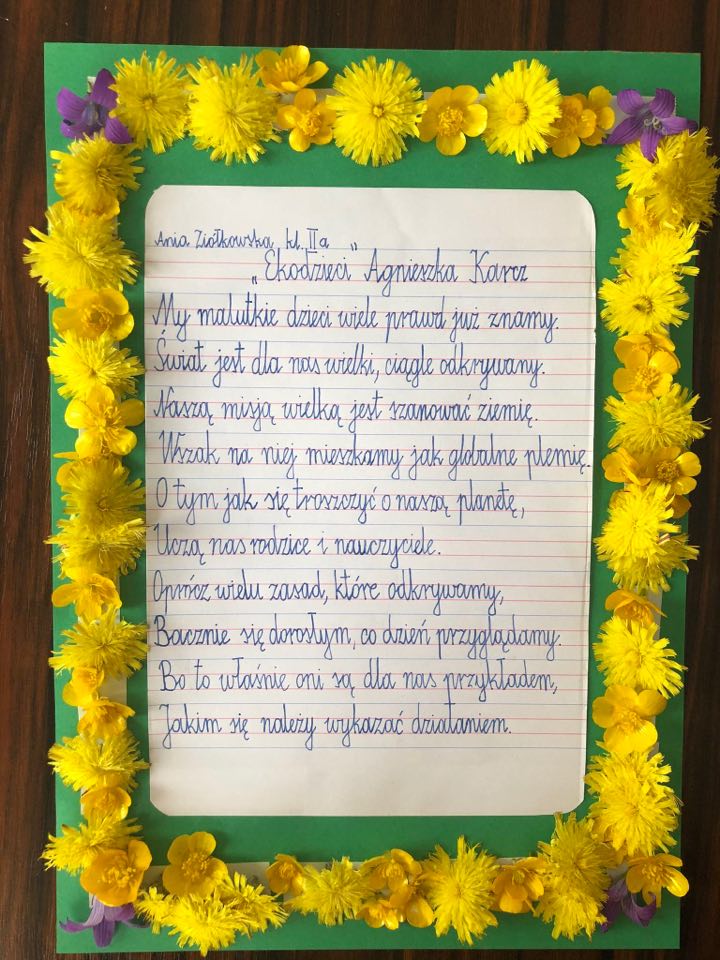 Ania Ziółkowska kl. IIa
„Ekodzieci” Agnieszka Karcz
My malutkie dzieci wiele prawd już znamy.
Świat jest dla nas wielki, ciągle odkrywany.
Naszą misją wielką jest szanować ziemię.
Wszak na niej mieszkamy jak globalne plemię.
O tym jak się troszczyć o naszą planetę,
Uczą nas rodzice i nauczyciele.
Oprócz wielu zasad, które odkrywamy,
Bacznie się dorosłym, co dzień przyglądamy.
Bo to właśnie oni są dla nas przykładem,
Jakim się należy wykazać działaniem.